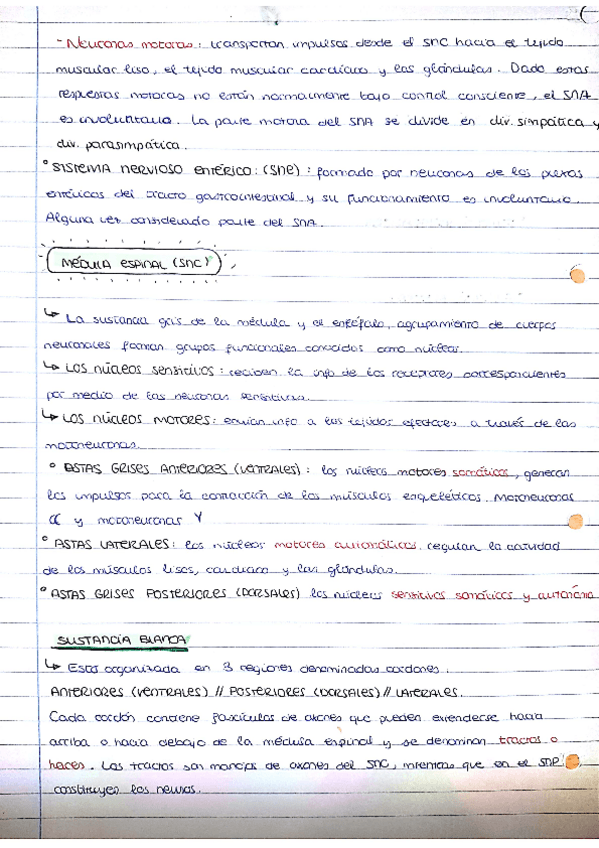 - Neuronas motoras: transportan impulsos desde el SNC hacia el tejido
muscular liso, el tejido muscular cardíaco y las glándulas. Dado estas
respuestas motoras no están normalmente bajo control consciente, el SNA
es involuntario. La parte motora del SNA se divide en div. simpática y
div. parasimpática.
° SISTEMA NERVIOSO ENTÉRICO: (SNE): formado por neuronas de los plexos
entéricos del tracto gastrointestinal y su funcionamiento es involuntario.
Alguna vez considerado parte del SNA.
MÉDULA ESPINAL (SNC)
↳ La sustancia gris de la médula y el encéfalo, agrupamiento de cuerpos
neuronales forman grupos funcionales conocidos como núcleos.
↳ LOS NÚCLEOS SENSITIVOS: reciben la info de los receptores correspondientes
por medio de las neuronas sensitivas.
↳ LOS NÚCLEOS MOTORES: envían info a los tejidos efectores a través de las
motoneuronas.
° ASTAS GRISES ANTERIORES (VENTRALES): los núcleos motores somáticos, generan
los impulsos para la contracción de los músculos esqueléticos. Motoneuronas
α y motoneuronas γ
° ASTAS LATERALES: los núcleos motores automáticos, regulan la actividad
de los músculos lisos, cardíaco y las glándulas.
° ASTAS GRISES POSTERIORES (DORSALES) los núcleos sensitivos somáticos y
SUSTANCIA BLANCA
↳ Esta organizada en 3 regiones denominadas cordones.
ANTERIORES (VENTRALES) // POSTERIORES (DORSALES) // LATERALES.
Cada cordón contiene fascículos de axones que pueden extenderse hacia
arriba o hacia debajo de la médula espinal y se denominan tractos o
haces. Los tractos son manojos de axones del SNC, mientras que en el SNP
los nervios.